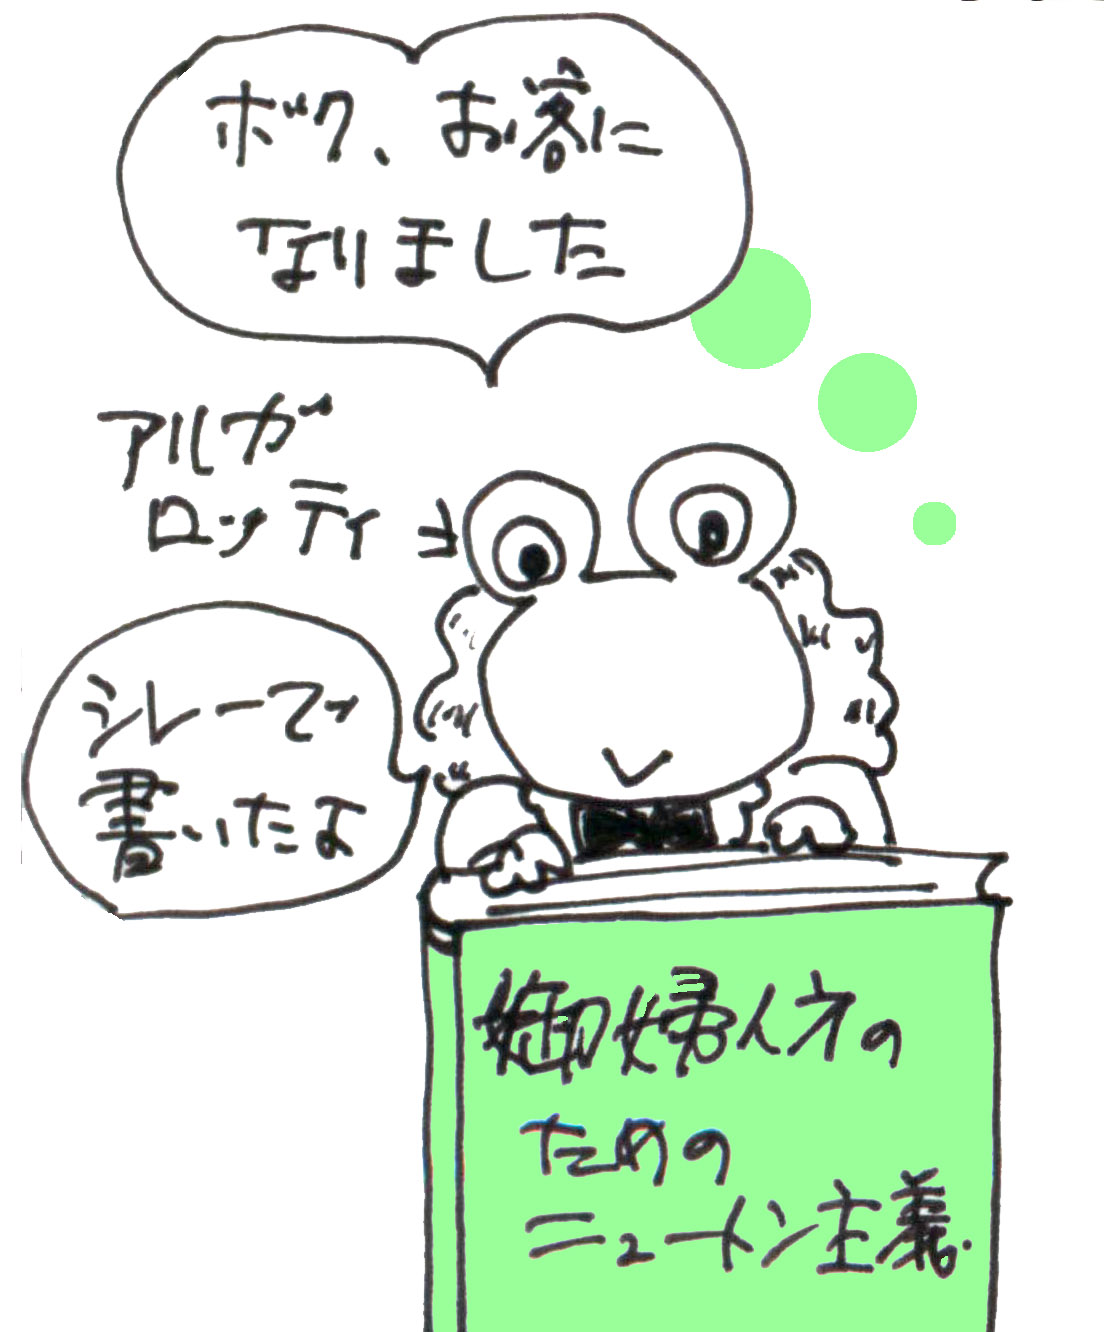 ボク、お客に
なりました
アルガ
ロッティ
シレーで
書いたよ
御婦人方の
ための
ニュートン主義